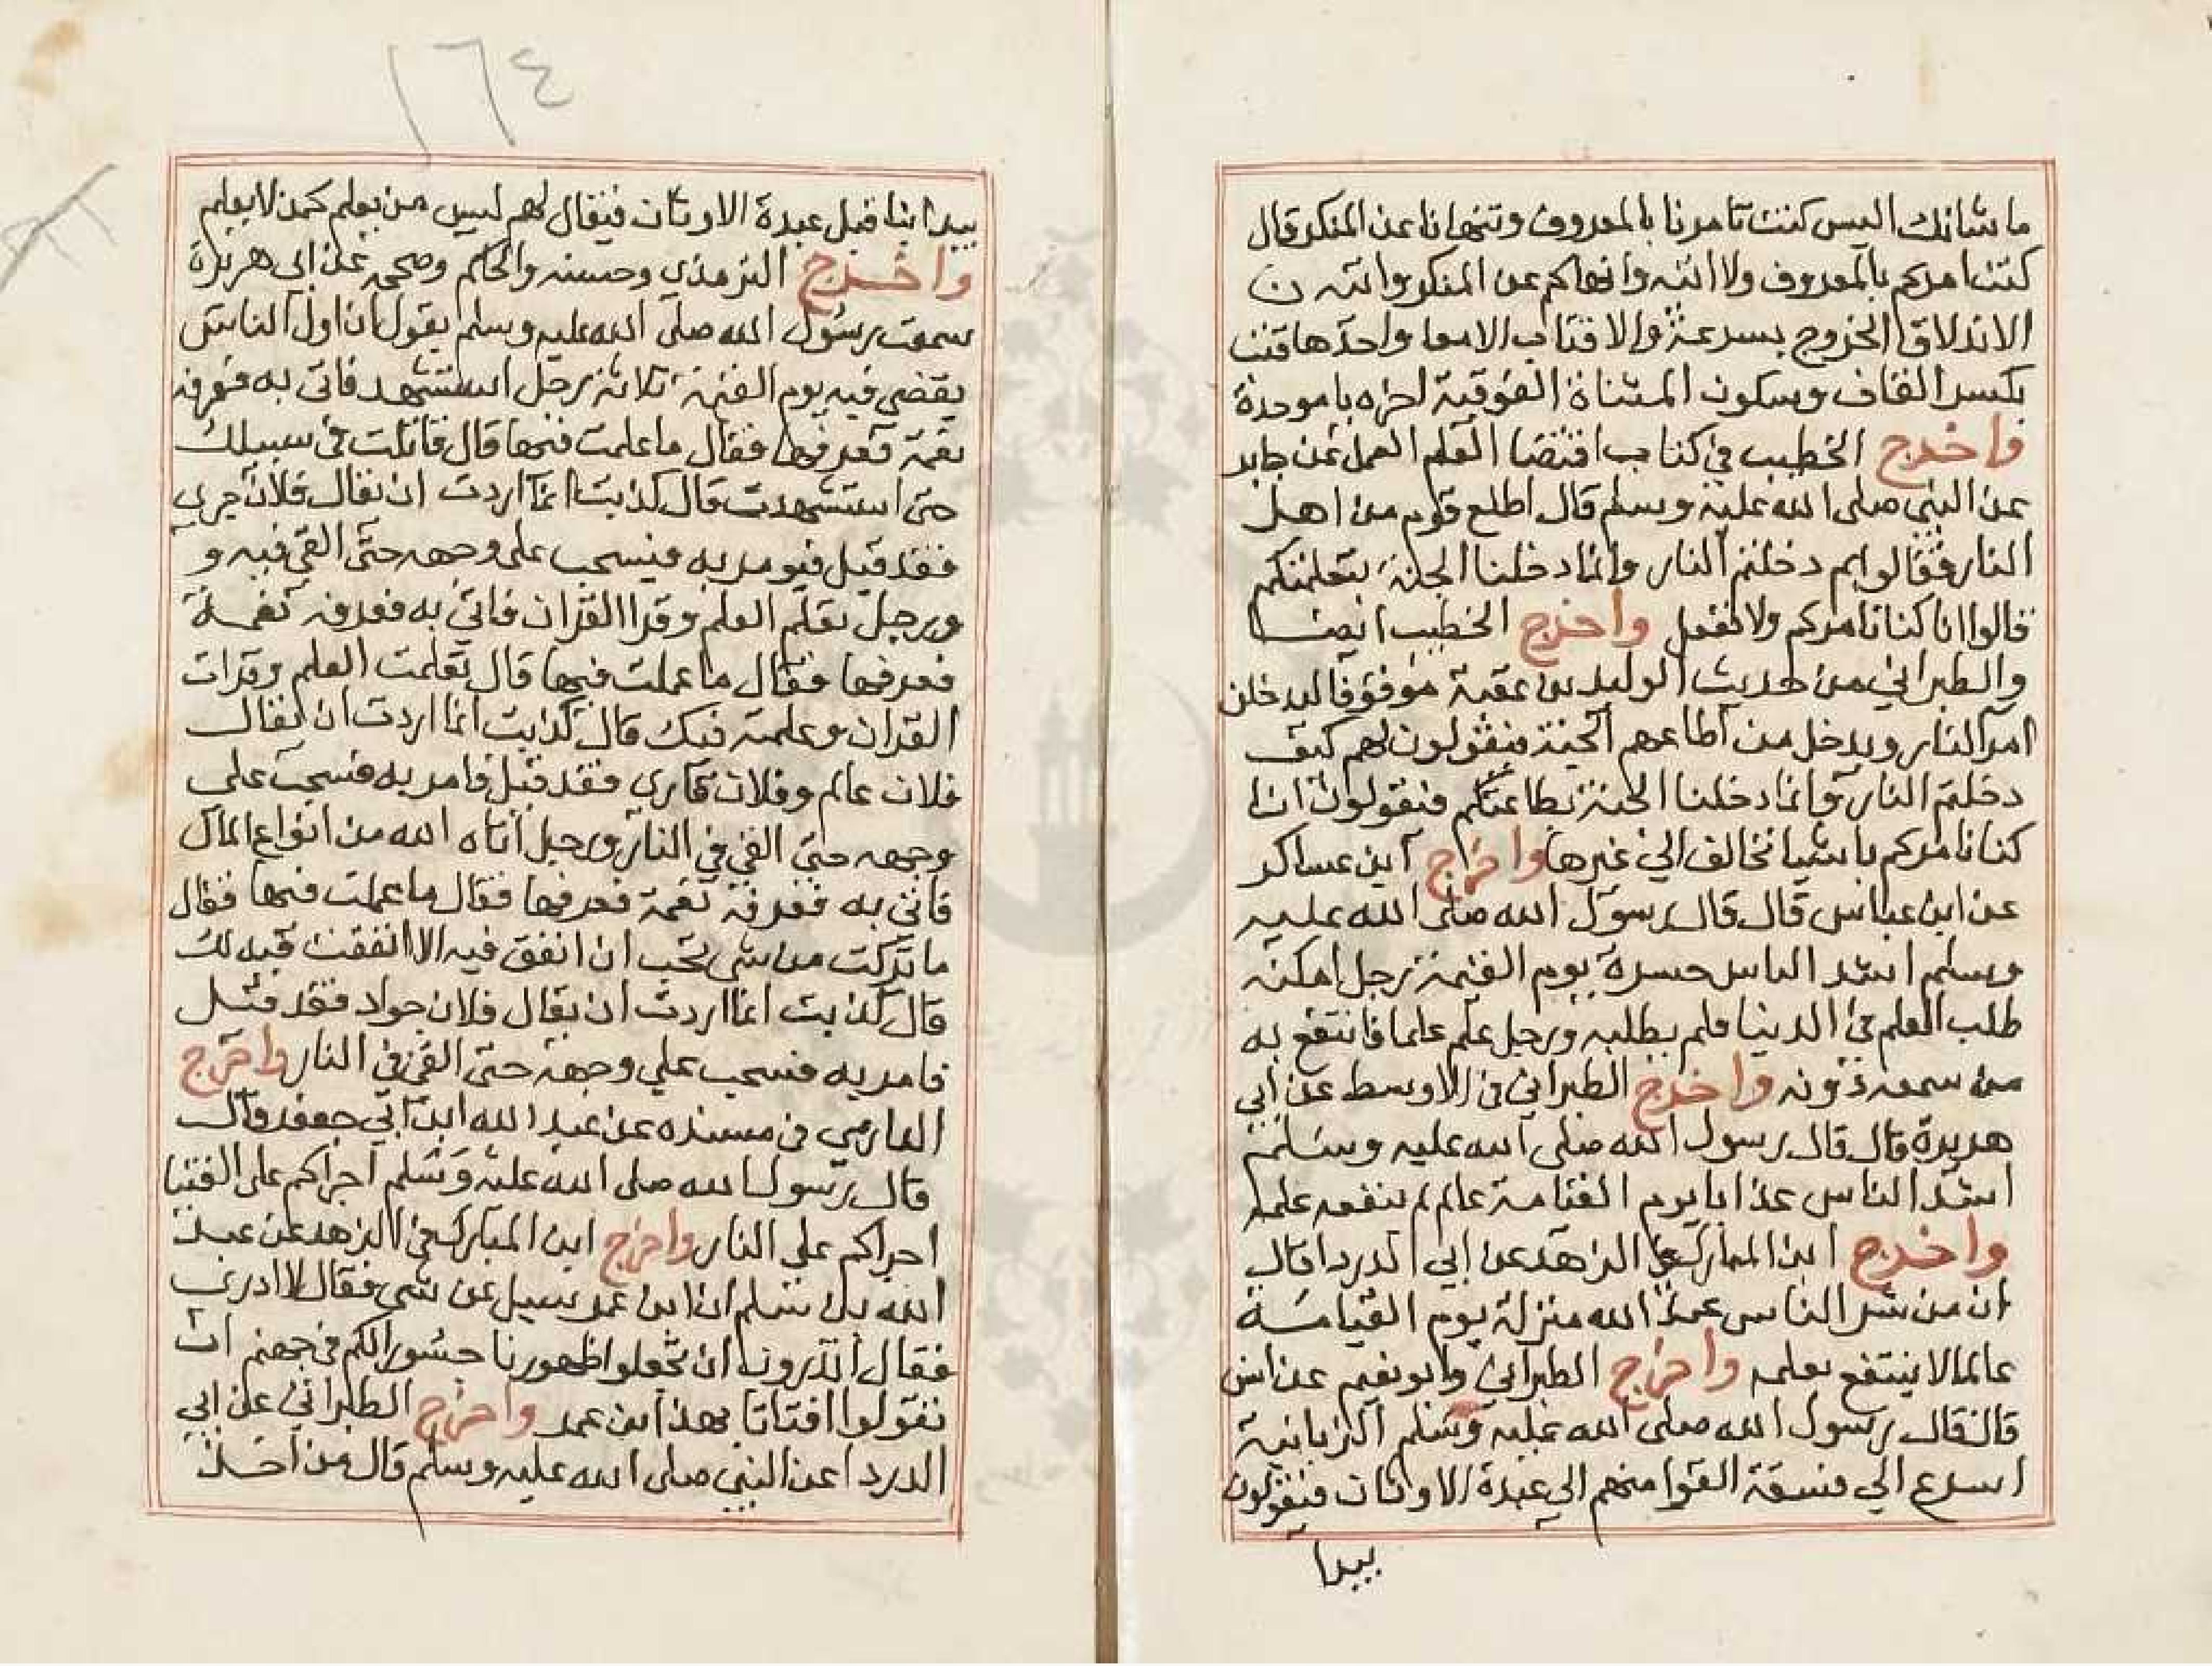 ما شانك اليس كنت تامرنا بالمعروف وتنهانا عن المنكر قال
كنت امركم بالمعروف ولا اتيه وانهاكم عن المنكر واتيه
الاندلاق الخروج بسرعة والاقتاب الامعا واحدها قتب
بكسر القاف وسكون المثناة الفوقية اخره باموحدة
واخرج الخطيب في كتاب اقتضا العلم العمل عن جابر
عن النبي صلى الله عليه وسلم قال اطلع قوم من اهل
النار فقالوا بم دخلتم النار وانما دخلنا الجنة بتعلمكم
قالوا انا كنا نامركم ولا نفعل واخرج الخطيب ايضا
والطبراني من حديث الوليد بن عقبة موقوفا ليدخلن
امرا النار ويدخل من اطاعهم الجنة فيقولون لهم كيف
دخلتم النار وانما دخلنا الجنة بطاعتكم فيقولون انا
كنا نامركم باشيا نخالف الي غيرها واخرج ابن عساكر
عن ابن عباس قال قال رسول الله صلى الله عليه
وسلم اشد الناس حسرة يوم القيمة رجل امكنه
طلب العلم في الدينا فلم يطلبه ورجل علم علما فانتفع به
من سمعه دونه واخرج الطبراني في الاوسط عن ابي
هريرة قال قال رسول الله صلى الله عليه وسلم
اشد الناس عذابا يوم القيامة عالم لم ينفعه علمه
واخرج ابن المبارك في الزهد عن ابي الدردا قال
ان من شر الناس عند الله منزلة يوم القيامة
عالما لا ينتفع بعلمه واخرج الطبراني وابو نعيم عن انس
قال قال رسول الله صلى الله عليه وسلم الزبانية
اسرع الي فسقة القرا منهم الي عبدة الاوثان فيقولون
يبدا
١٦٤
يبدا بنا قبل عبدة الاوثان فيقال لهم ليس من يعلم كمن لا يعلم
واخرج الترمذي وحسنه والحاكم وصححه عن ابي هريرة
سمعت رسول الله صلى الله عليه وسلم يقول ان اول الناس
يقضي فيه يوم القيمة ثلاثة رجل استشهد فاتى به فعرفه
نعمة فعرفها فقال ما علمت فيها قال قاتلت في سبيلك
حتى استشهدت قال كذبت انما اردت ان يقال فلان جري
فقد قيل فيومر به فيسحب على وجهه حتى القي فيه و
ورجل تعلم العلم وقرا القران فاتي به فعرفه نعمة
فعرفها فقال ما عملت فيها قال تعلمت العلم وقرات
القران وعلمته فيك قال كذبت انما اردت ان يقال
فلان عالم وفلان قاري فقد قيل فامر به فسحب على
وجهه حتى القي في النار ورجل اتاه الله من انواع المال
فاتي به فعرفه نعمة فعرفها فقال ما عملت فيها فقال
ما تركت من شي تحب ان انفق فيه الا انفقت فيه لك
قال كذبت انما اردت ان يقال فلان جواد فقد قيل
فامر به فسحب علي وجهه حتى القي في النار واخرج
الدارمي في مسنده عن عبد الله ابن ابي جعفر قال
قال رسول الله صلى الله عليه وسلم اجراكم على الفتيا
اجراكم على النار واخرج ابن المبارك في الزهد عن عبد
الله بن مسلم ان ابن عمر سيل عن شي فقال لا ادري
فقال اتريدون ان تجعلوا ظهورنا جسورا لكم في جهنم ان
تقولوا افتانا بهذا ابن عمر واخرج الطبراني عن ابي
الدردا عن النبي صلى الله عليه وسلم قال من احد